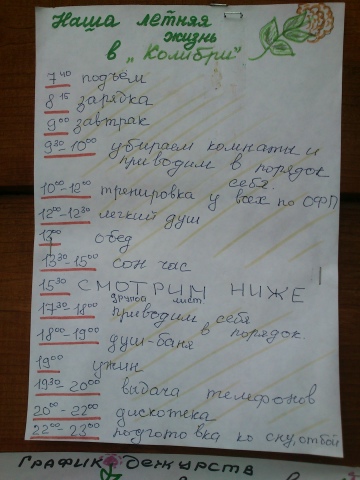 Наша летняя
жизнь
в "Колибри"
7⁴⁰ подъём
8¹⁵ зарядка
9⁰⁰ завтрак
9³⁰-10⁰⁰ убираем комнаты и
приводим в порядок
себя.
10⁰⁰-12⁰⁰ тренировка у всех по ОФП
12⁰⁰-12³⁰ легкий душ
13⁰⁰ обед
13³⁰-15⁰⁰ сон час
15³⁰ СМОТРИМ НИЖЕ
другой лист
17³⁰-18⁰⁰ приводим себя
в порядок.
18⁰⁰-19⁰⁰ душ-баня
19⁰⁰ ужин
19³⁰-20⁰⁰ выдача телефонов
20⁰⁰-22⁰⁰ дискотека
22⁰⁰-23⁰⁰ подготовка ко сну, отбой
ГРАФИК ДЕЖУРСТВ